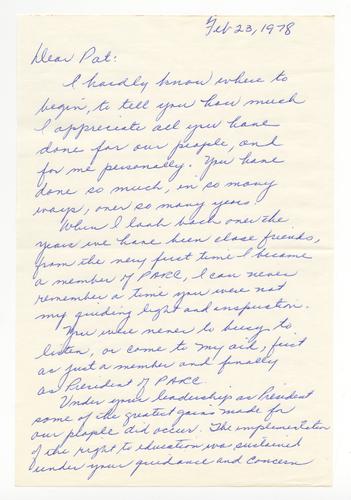 Feb 23, 1978
Dear Pat:
I hardly know where to
begin, to tell you how much
I appreciate all you have
done for our people, and
for me personally. You have
done so much, in so many
ways, over so many years.
When I look back over the
years we have been close friends,
from the very first time I became
a member of PARC, I can never
remember a time you were not
my guiding light and inspiration.
You were never to busy to
listen, or come to my aid, first
as just a member and finally
as President of PARC.
Under your leadership as President
some of the greatest gains made for
our people did occur. The implementation
of the right to education was sustained
under your guidance and concern